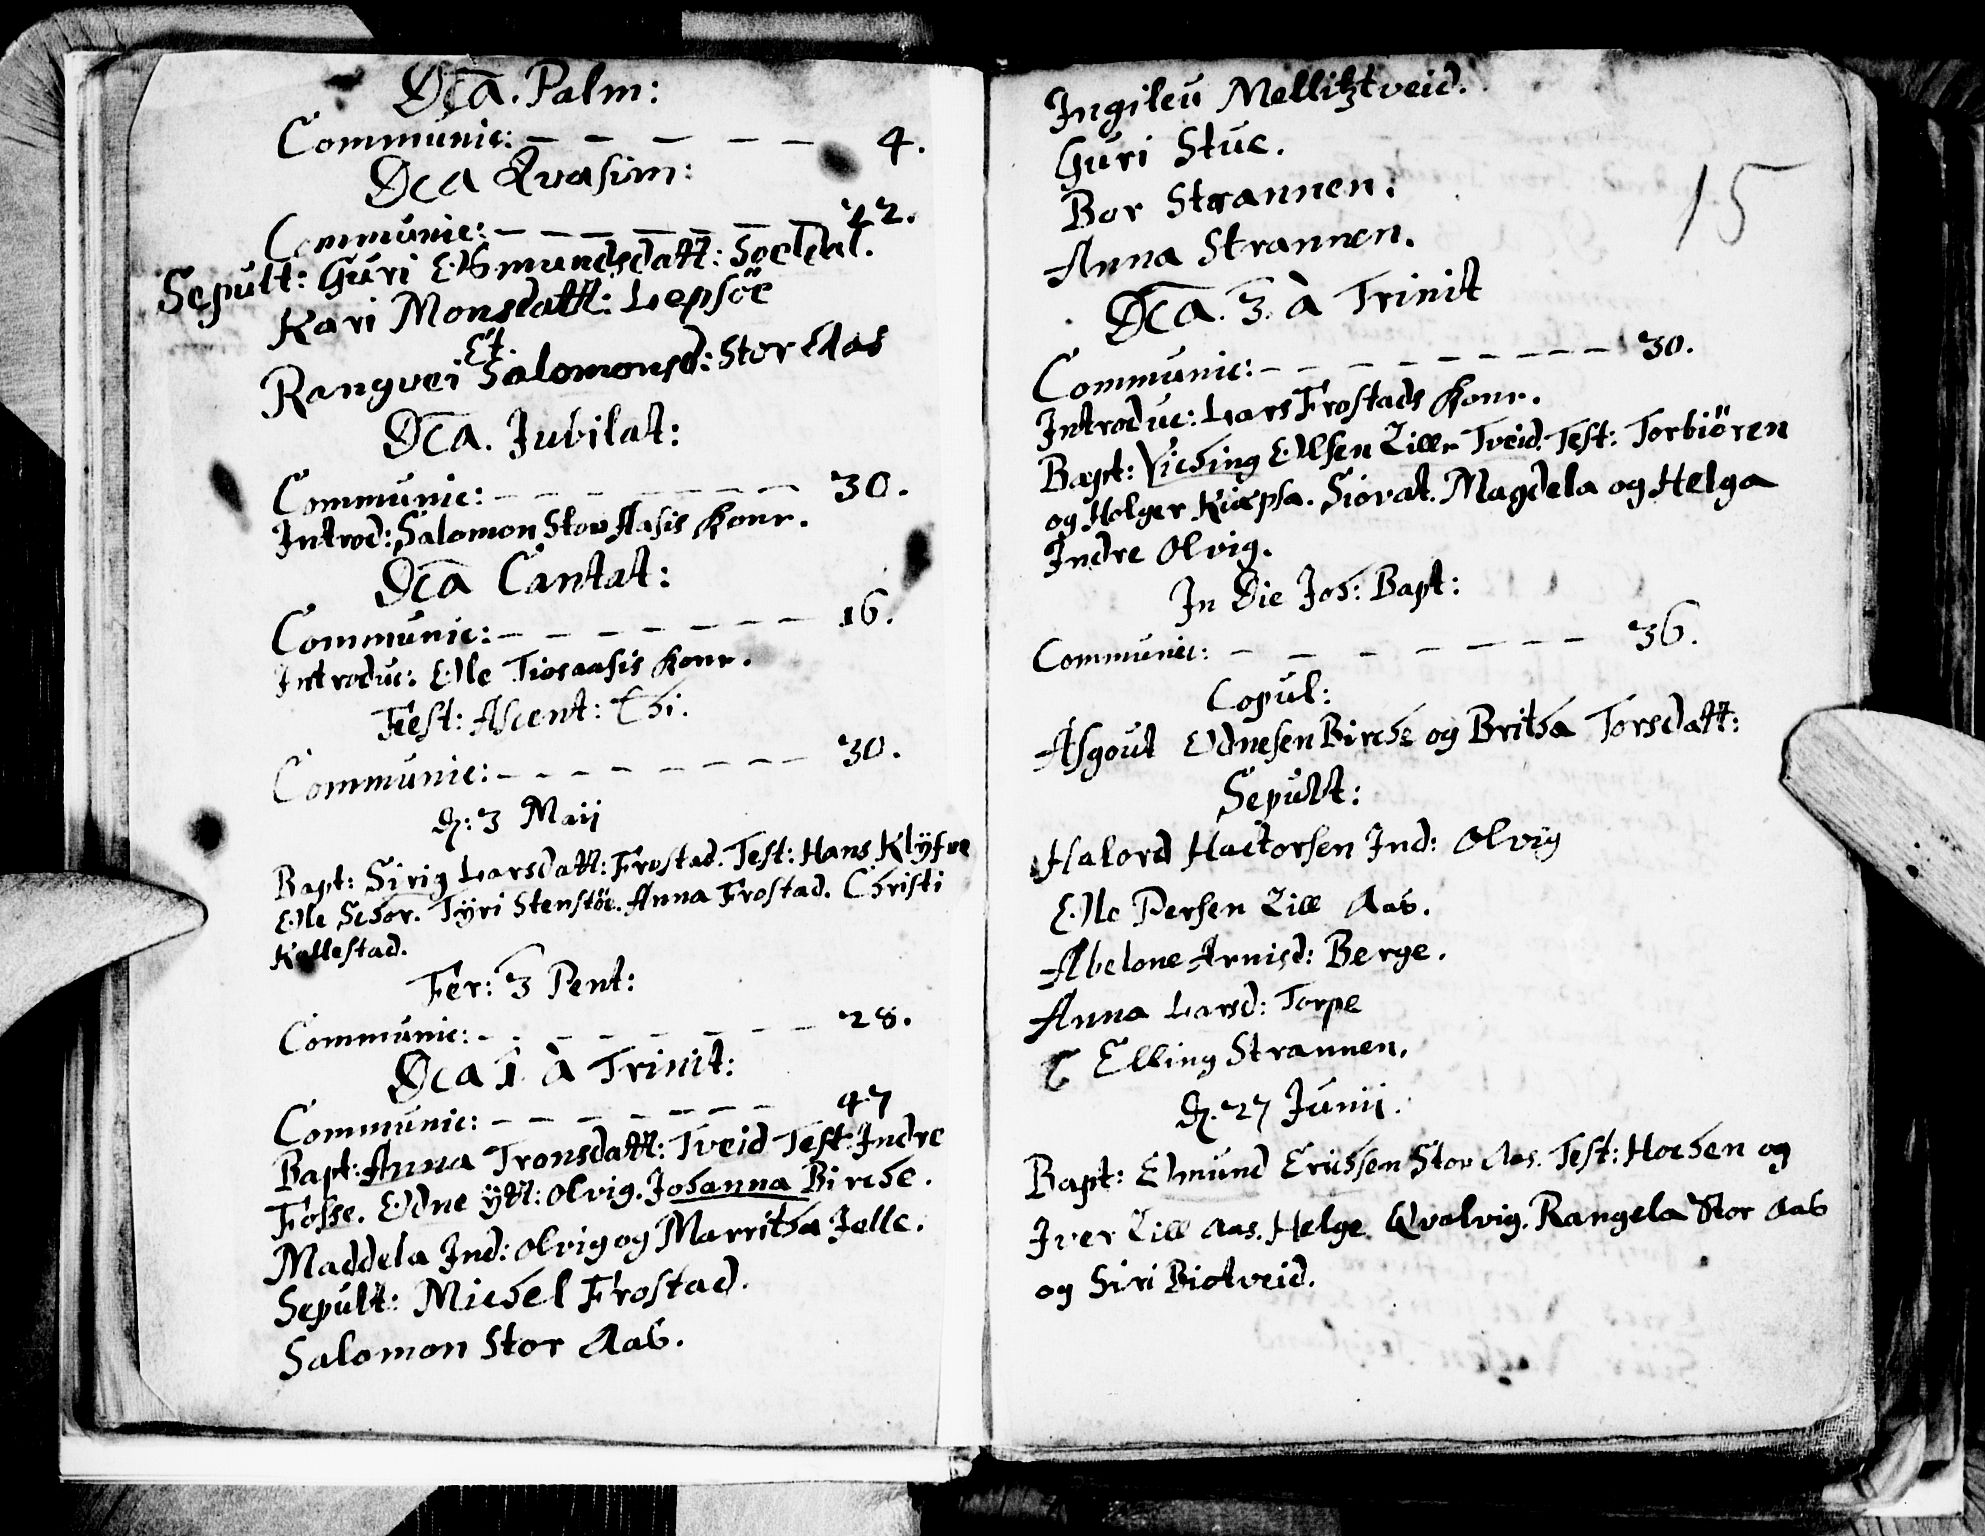 Dca. Palm:
Communic: – – – – – 4.
Dca Qvasim:
Communic: – – – – – – 22.
Sepult: Guri Asmundsdatt: Soeldal.
Kari Monsdatt: Lepsöe
Et.
Rangvei Salomonsd: Stor Aas
Dca. Jubilat:
Communic: – – – – – – – – 30.
Introd: Salomon Stor Aasis Konr.
Dca Cantat:
Communic: – – – – – – – 16.
Introduc: Ole Tiosaasis Konr.
Fest: Ascent: Chi.
Communic: – – – – – – – – 30.
D: 3 Maij
Bapt: Sirig Larsdatt: Frostad. Test: Hans Klÿfve
Ole Schor. Tÿri Stenstöe. Anna Frostad. Christi
Kallestad.
Fer: 3 Pent:
Communic: – – – – – – – 28.
Dca 1 à Trinit:
Communic: – – – – – – – 47
Bapt: Anna Tronsdatt: Tveid Test: Indre
Fosse. Odne ÿtt: Olvig. Johanna Birche.
Maddela Ind: Olvig og Marritha Jelle.
Sepult: Michel Frostad.
Salomon Stor Aas.
Ingileu Mellitztveid.
Guri Stue.
Bor Strannen.
Anna Strannen.
15
Dca. 3. à Trinit
Communic: – – – – – – – – – 30.
Introduc: Lars Frostads Konr.
Bapt: Viching Olsen Lille Tveid. Test: Torbiören
og Holger Kiæpsa. Siovat. Magdela og Helga
Indre Olvig.
In Die Joh: Bapt:
Communic: – – – – – – – 36.
Copul:
Asgout Odnesen Birche og Britha Torsdatt:
Sepult:
Halord Hactorsen Ind: Olvig
Ole Persen Lill Aas.
Abelone Arnisd: Berge.
Anna Larsd: Torpe
Elling Strannen.
D. 27 Junii.
Bapt: Edmund Erichsen Stor Aas. Test: Hochen og
Iver Lill Aas. Helge Qvalvig. Rangela Stor Aas
og Siri Biotveid.